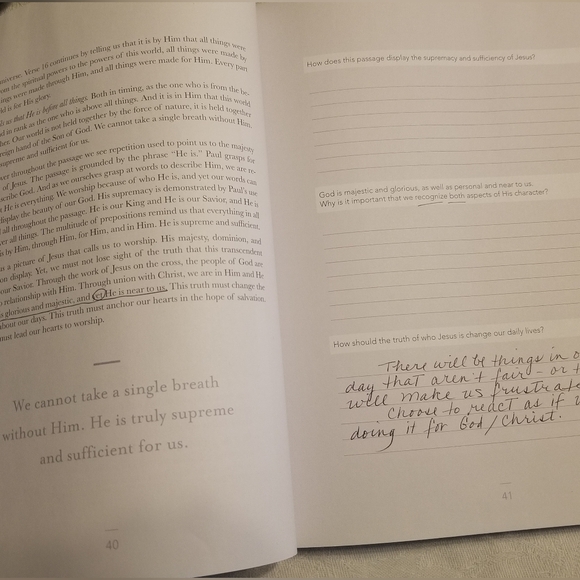 universe. Verse 16 continues by telling us that it is by Him that all things were
the spiritual powers to the powers of this world, all things were made by
things were made through Him, and all things were made for Him. Every part
is for His glory.
us that He is before all things. Both in timing, as the one who is from the be-
in rank as the one who is above all things. And it is in Him that this world
Our world is not held together by the force of nature, it is held together
reign hand of the Son of God. We cannot take a single breath without Him.
supreme and sufficient for us.
throughout the passage we see repetition used to point us to the majesty
of Jesus. The passage is grounded by the phrase “He is.” Paul grasps for
describe God. And as we ourselves grasp at words to describe Him, we are re-
He is everything. We worship because of who He is, and yet our words can
display the beauty of our God. His supremacy is demonstrated by Paul's use
all throughout the passage. He is our King and He is our Savior, and He is
over all things. The multitude of prepositions remind us that everything in all
is by Him, through Him, for Him, and in Him. He is supreme and sufficient.
a picture of Jesus that calls us to worship. His majesty, dominion, and
on display. Yet, we must not lose sight of the truth that this transcendent
our Savior. Through the work of Jesus on the cross, the people of God are
relationship with Him. Through union with Christ, we are in Him and He
glorious and majestic, and yet He is near to us. This truth must change the
about our days. This truth must anchor our hearts in the hope of salvation.
must lead our hearts to worship.
We cannot take a single breath
without Him. He is truly supreme
and sufficient for us.
40
How does this passage display the supremacy and sufficiency of Jesus?
God is majestic and glorious, as well as personal and near to us.
Why is it important that we recognize both aspects of His character?
How should the truth of who Jesus is change our daily lives?
There will be things in
day that aren't fair - or
will make us
Choose to react as if
doing it for God/Christ.
41